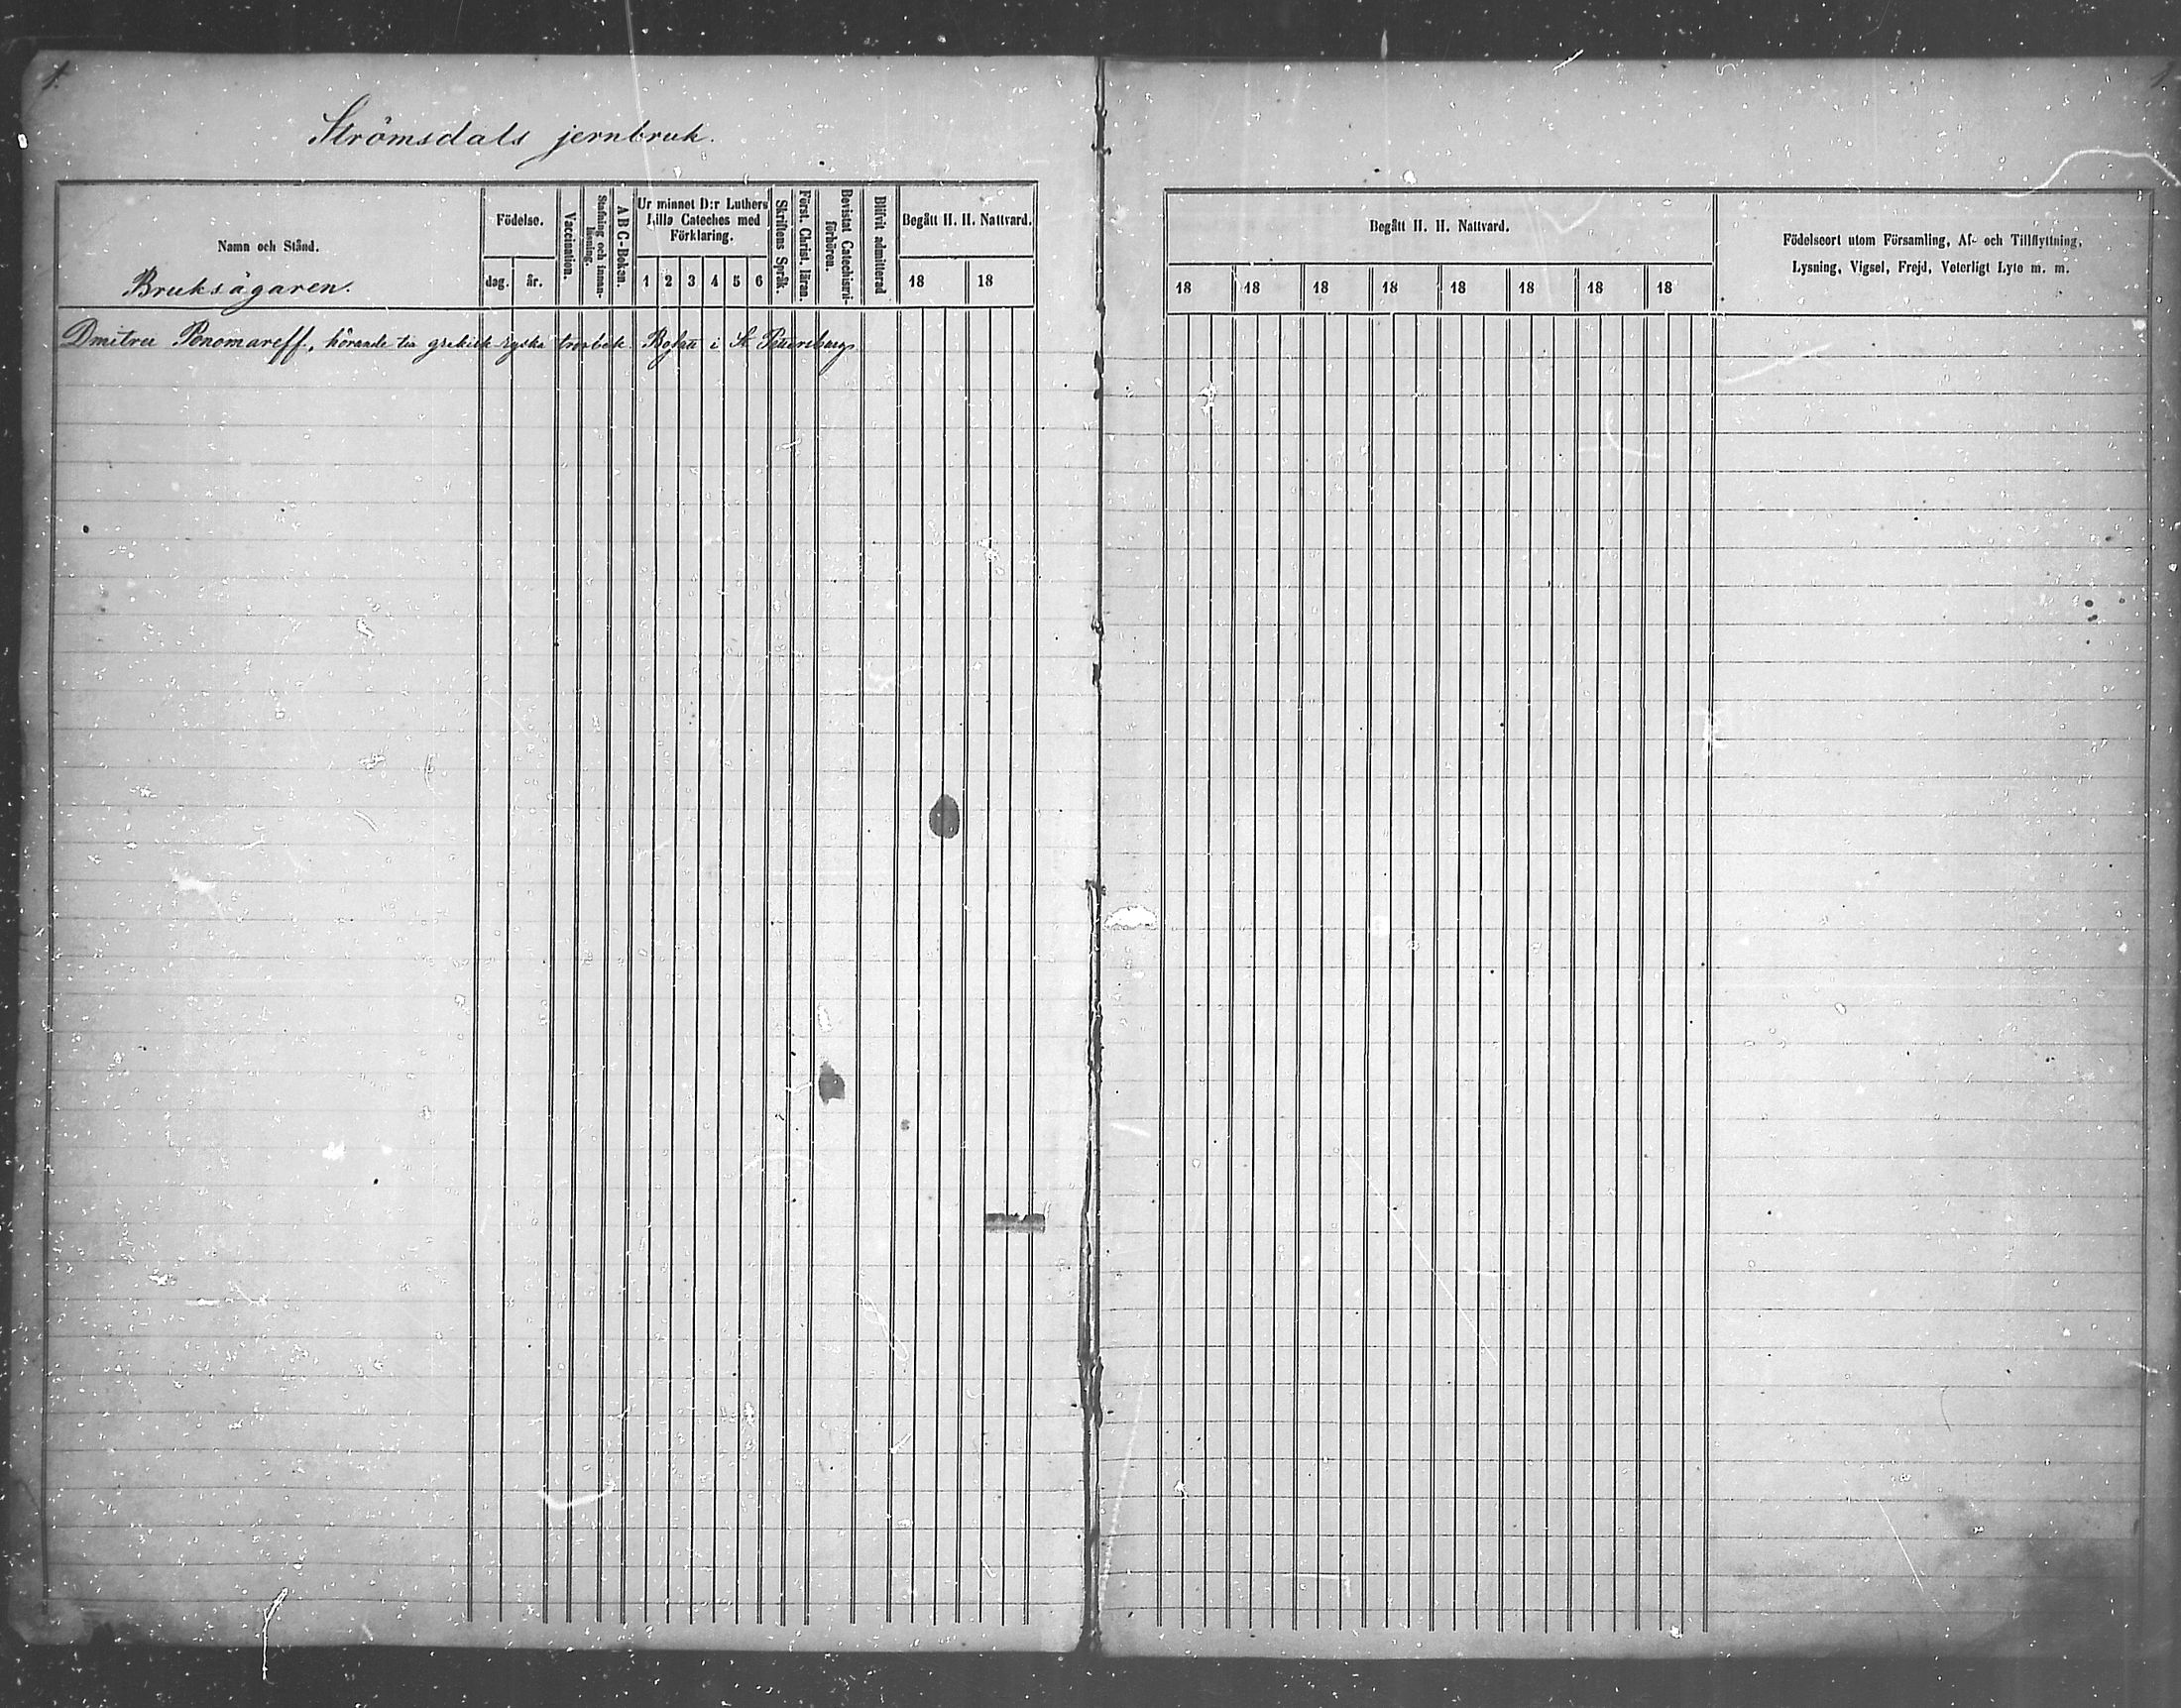 1.
Strömsdals jernbruk.
Namn och Stånd.
Bruksägaren.
Födelse.
dag.
år.
Vaccination.
Stafning och innan-
läsning.
ABC-Boken.
Ur minnet D:r Luthers
Lilla Cateches med
Förklaring.
1 2 3 4 5 6
Skriftens Språk.
Först. Christ. läran.
Bevistat Catechismi-
förhören.
Blifvit admitterad
Begått H. H. Nattvard.
18 18
Dmitrei Ponomareff, hörande till grekisk ryska trosbek. Bosatt i St Petersburg
Begått H. H. Nattvard.
18 18 18 18 18 18 18 18
Födelseort utom Församling, Af- och Tillflyttning,
Lysning, Vigsel, Frejd, Veterligt Lyte m. m.
1